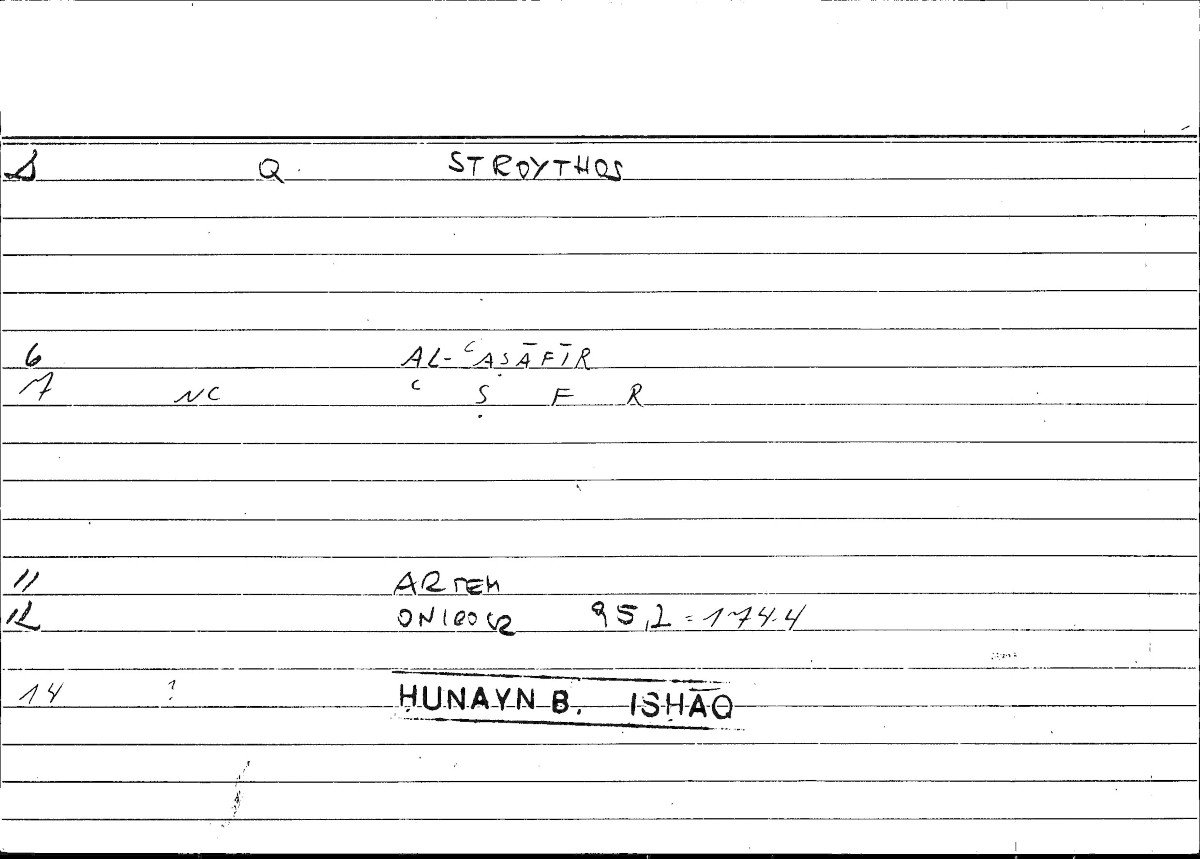 1 Q STROYTHOS
6 AL-ʿAṢĀFĪR
7 NC ʿ Ṣ F R
11 ARTEM
12 ONIROCR 95,2 = 174.4
14 ? ḤUNAYN B. ISḤĀQ